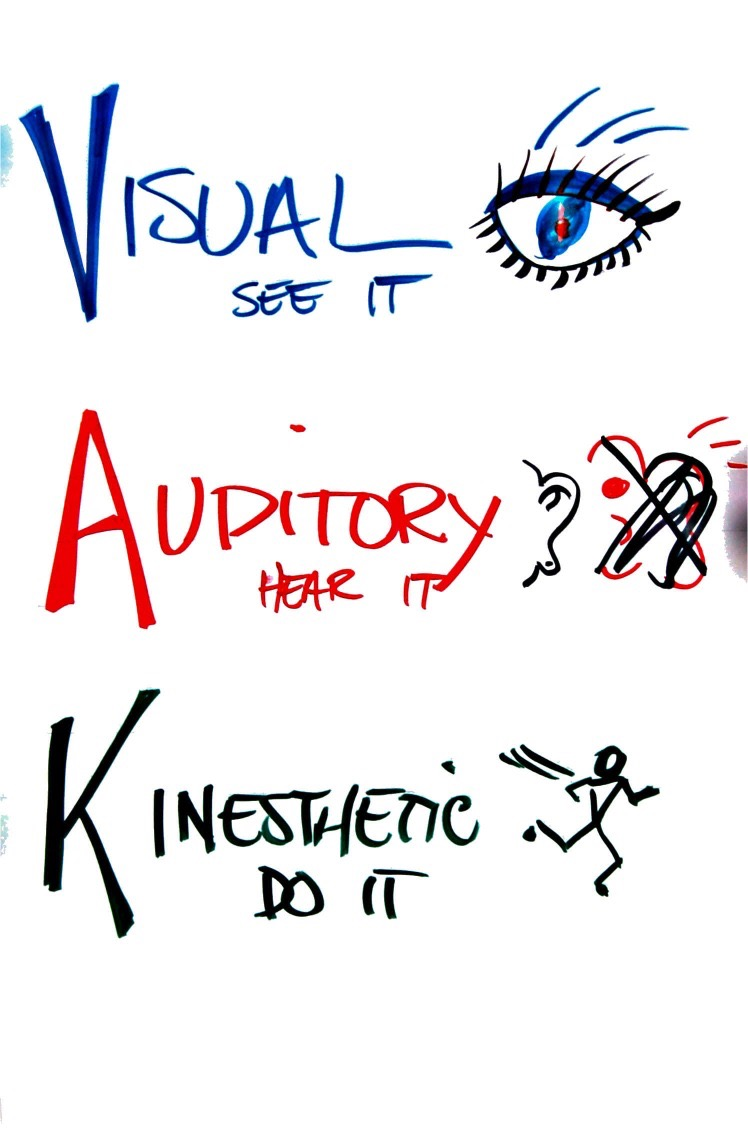 VISUAL
SEE IT
AUDITORY
HEAR IT
KINESTHETIC
DO IT